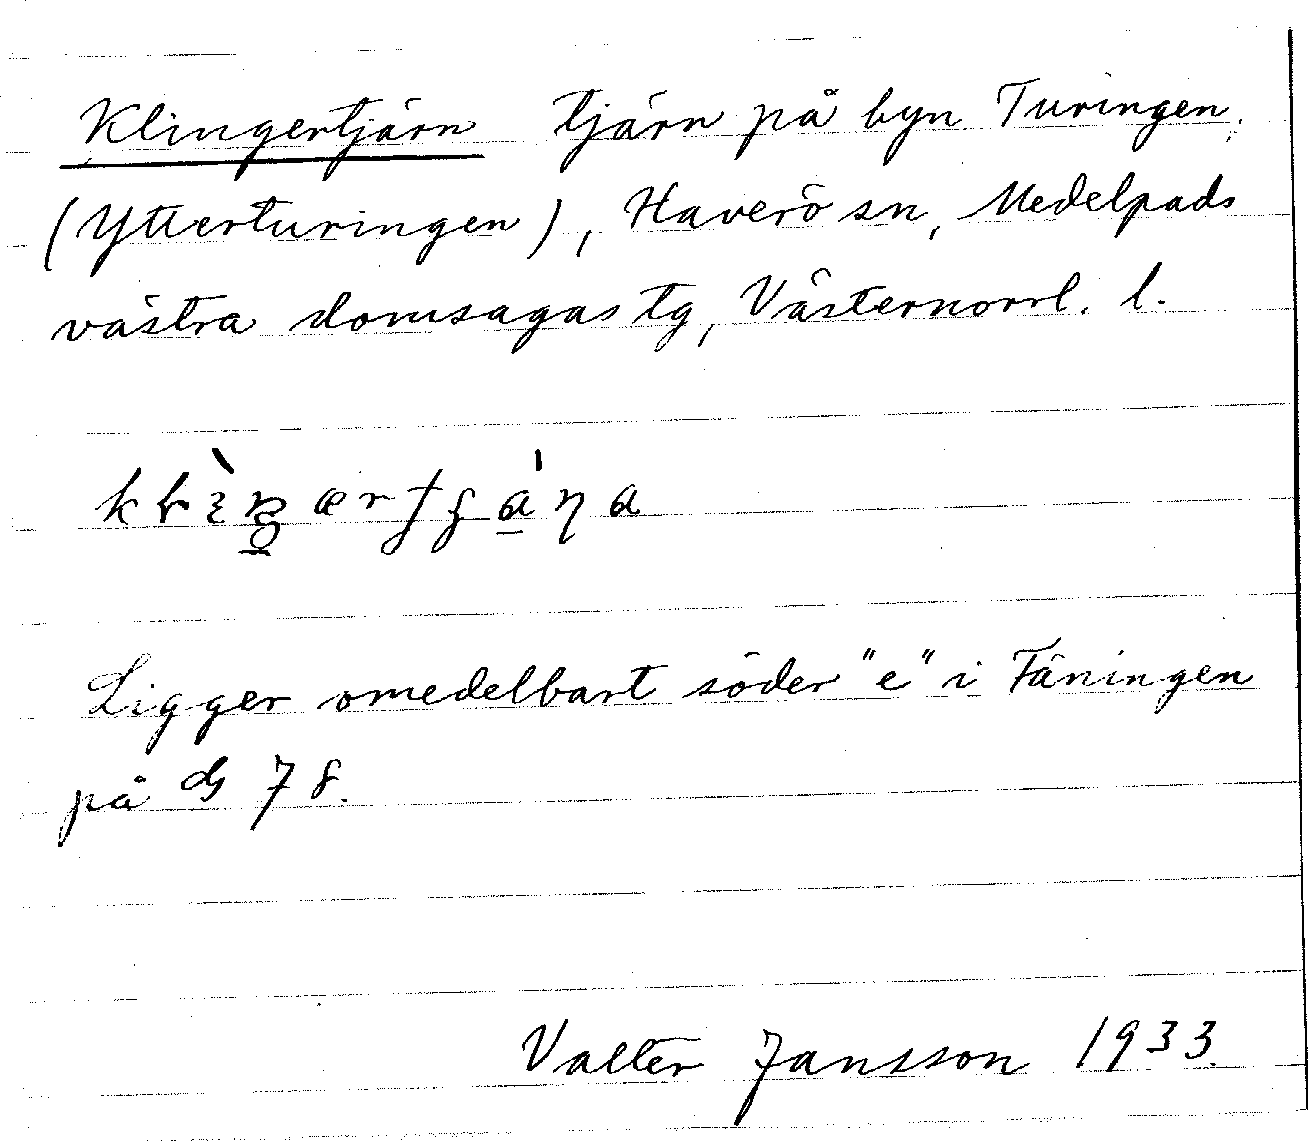 Klingertjärn tjärn på byn Turingen
(Ytterturingen), Haverö sn, Medelpads
västra domsagas tg, Västernorrl. l.
Ligger omedelbart söder "e" i Täningen
på 78.
Valter Jansson 1933.